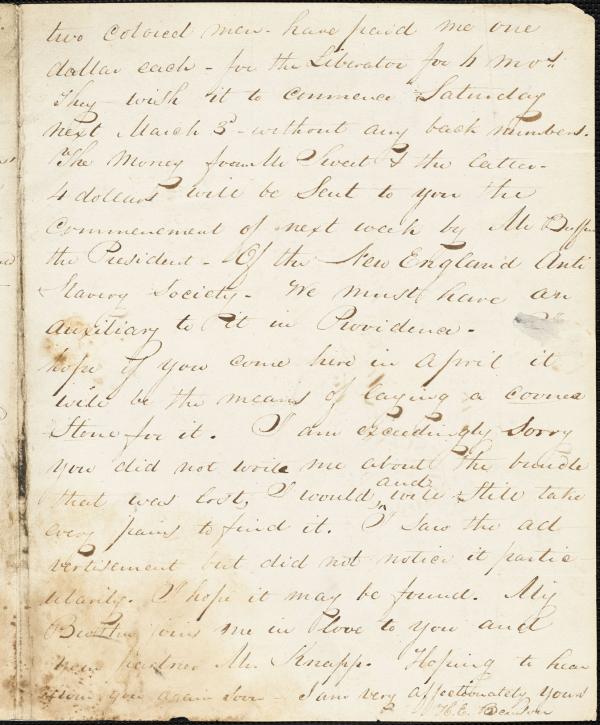 two colored men - have paid me one
dollar each - for the Liberator for 4 mos.
They wish it to commence Saturday
next March 3d - without any back numbers.
The Money from Mr Sweet & the latter
4 dollars will be Sent to you the
Commencement of next week by Mr Buffum
the President - Of the New England Anti
Slavery Society - We must have an
auxiliary to it in Providence -
hope if you come here in April it
will be the means of laying a corner
Stone for it. I am exceedingly Sorry
you did not write me about the bundle
that was lost, I would, and will still take
every pains to find it. I Saw the ad
vertisement but did not notice it partic
ularly. I hope it may be found. My
Brother joins me in Love to you and
partner Mr Knapp. Hoping to hear
from you again soon - I am very affectionately yours
H. E. Benson